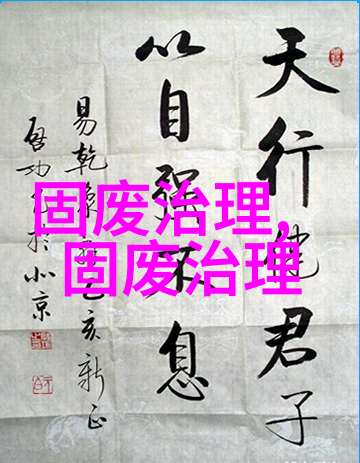 固废治理,
固废治理
天行健君子
以自强不息
易乾象 乙亥新正
啓功 于北京